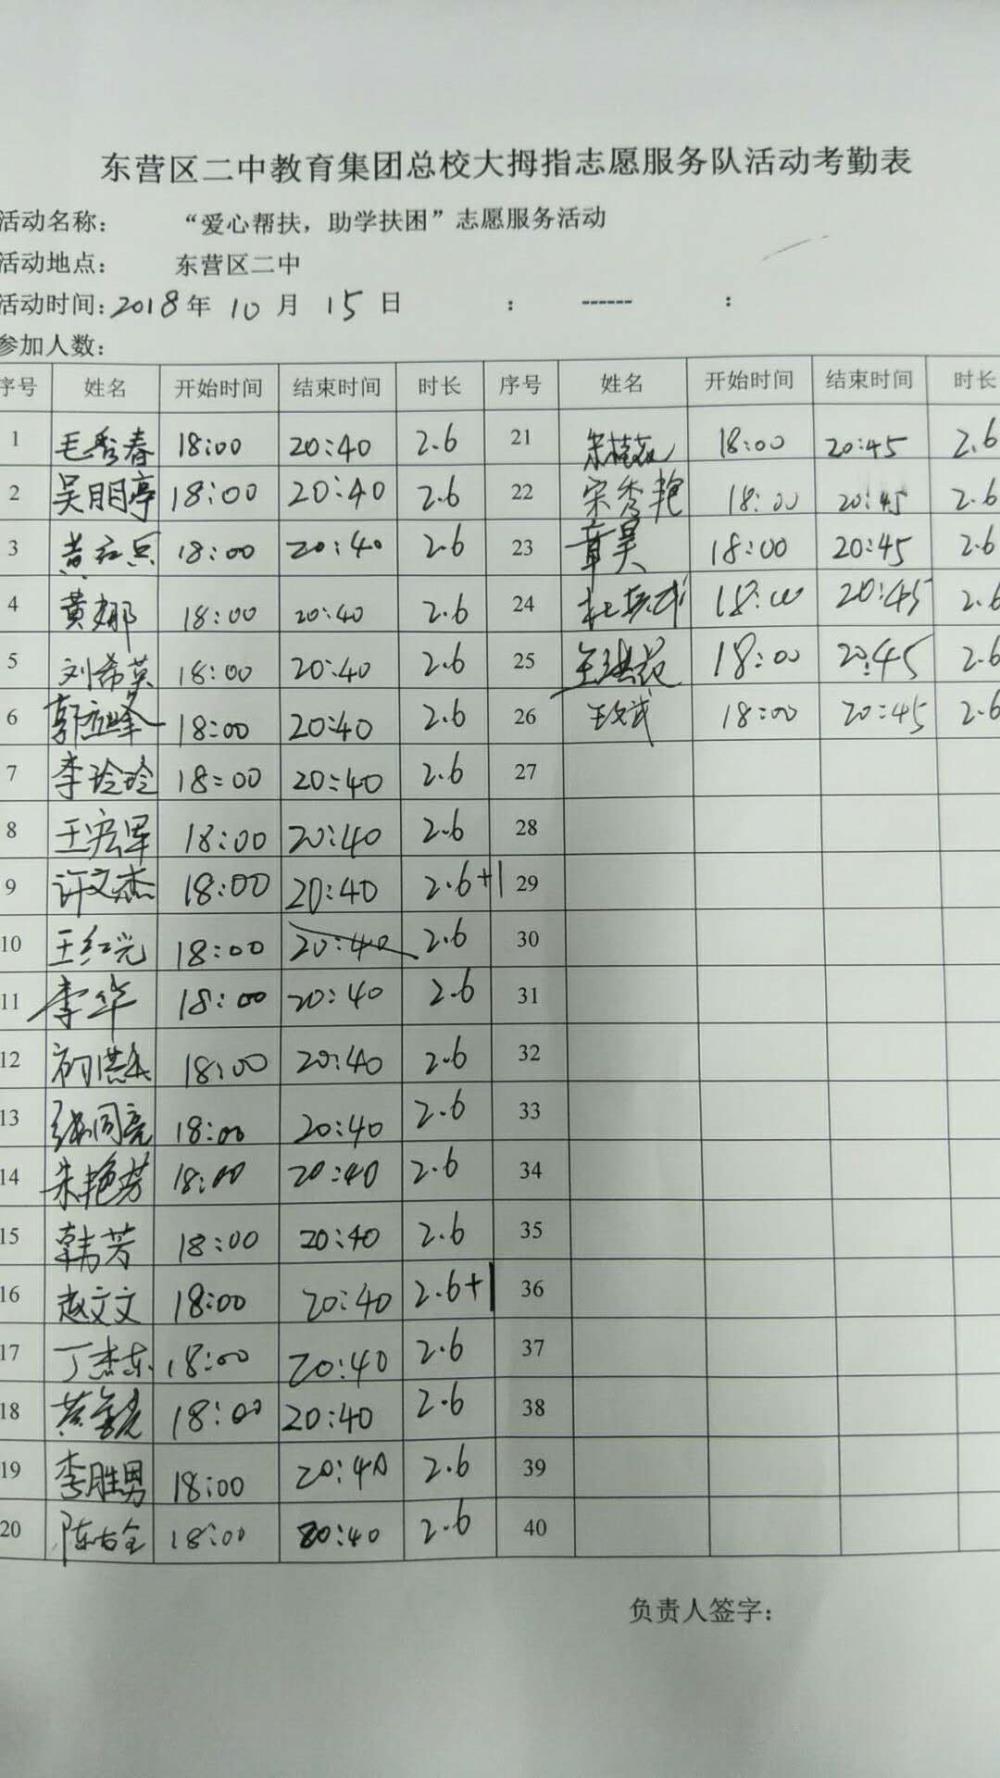 东营区二中教育集团总校大拇指志愿服务队活动考勤表
活动名称： “爱心帮扶，助学扶困”志愿服务活动
活动地点： 东营区二中
活动时间：2018年 10 月 15 日 : ------ :
参加人数：
序号 姓名 开始时间 结束时间 时长 序号 姓名 开始时间 结束时间 时长
1 毛秀春 18:00 20:40 2.6 21 18:00 20:45 2.6
2 吴明亭 18:00 20:40 2.6 22 宋秀艳 18:00 20:45 2.6
3 黄红兵 18:00 20:40 2.6 23 章昊 18:00 20:45 2.6
4 黄娜 18:00 20:40 2.6 24 18:00 20:45 2.6
5 刘希英 18:00 20:40 2.6 25 18:00 20:45 2.6
6 郭立峰 18:00 20:40 2.6 26 王文武 18:00 20:45 2.6
7 李玲玲 18:00 20:40 2.6 27
8 王宏军 18:00 20:40 2.6 28
9 许文杰 18:00 20:40 2.6+1 29
10 王红光 18:00 20:40 2.6 30
11 李华 18:00 20:40 2.6 31
12 18:00 20:40 2.6 32
13 张同亮 18:00 20:40 2.6 33
14 朱艳芳 18:00 20:40 2.6 34
15 韩芳 18:00 20:40 2.6 35
16 赵文文 18:00 20:40 2.6+1 36
17 丁杰东 18:00 20:40 2.6 37
18 18:00 20:40 2.6 38
19 李胜男 18:00 20:40 2.6 39
20 陈古全 18:00 20:40 2.6 40
负责人签字：